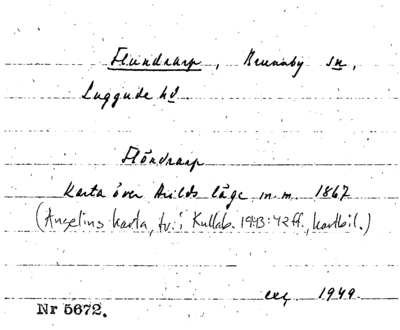 Flundrarp, Brunnby sn,
Luggude hd.
Flöndrarp
Karta över Arilds läge m.m. 1867
(Angelins karta, tr. i Kullab. 1943:42 ff., kartbil.)
1949.
Nr 5672.